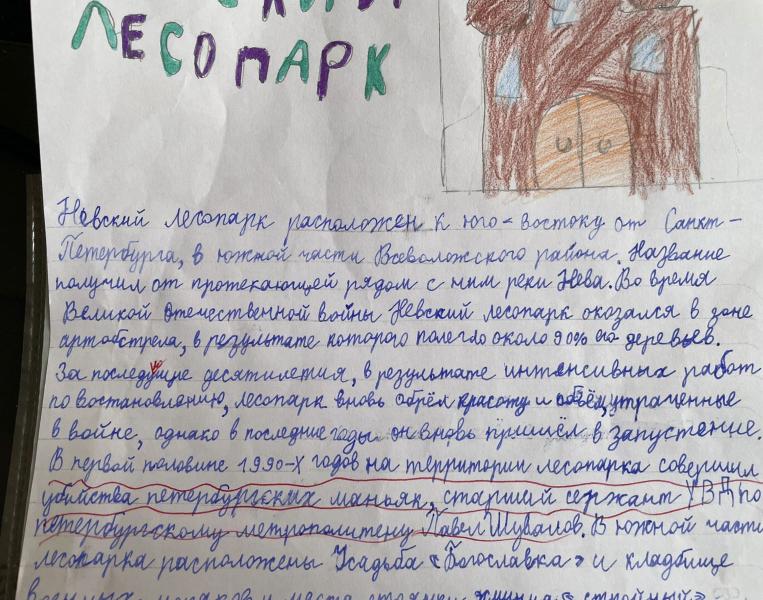 ЛЕСОПАРК
Невский лесопарк расположен к юго-востоку от Санкт-
Петербурга, в южной части Всеволожского района. Название
получил от протекающей рядом с ним реки Нева. Во время
Великой отечественной войны Невский лесопарк окозался в зоне
артобстрела, в результате которого полегло около 90% его деревьев.
За последующие десятилетия, в результате интенсивных работ
по востановлению, лесопарк вновь обрёл красоту и объём, утраченные
в войне, однако в последние годы он вновь пришёл в запустение.
В первой половине 1990-х годов на территории лесопарка совершил
убийства петербургских маньяк, старший сержант УВД по
петербургскому метрополитену Павел Шувалов. В южной части
лесопарка расположены Усадьба «Богославка» и кладбище